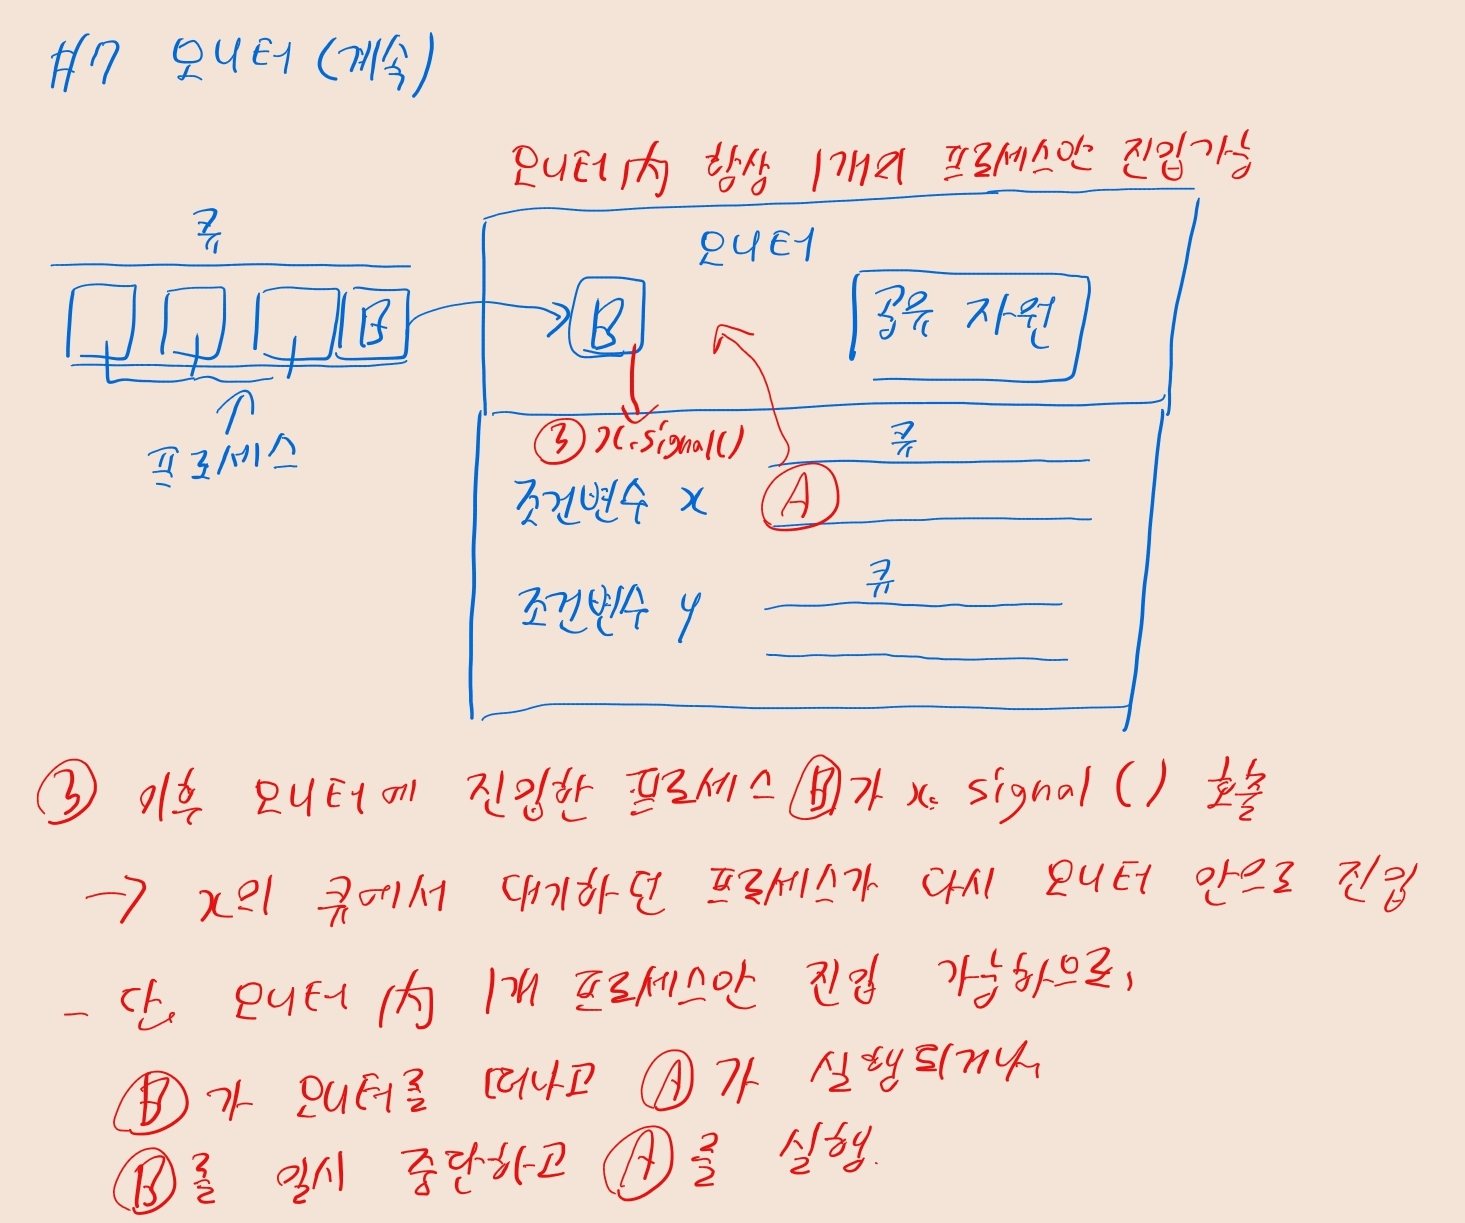 #7 모니터 (계속)
모니터 內 항상 1개의 프로세스만 진입가능
큐
모니터
B
B
공유 자원
프로세스
③ x.signal()
큐
조건변수 x
A
큐
조건변수 y
③ 이후 모니터에 진입한 프로세스 Ⓑ가 x.signal() 호출
→ x의 큐에서 대기하던 프로세스가 다시 모니터 안으로 진입
- 단, 모니터 內 1개 프로세스만 진입 가능하므로,
Ⓑ가 모니터를 떠나고 Ⓐ가 실행되거나,
Ⓑ를 일시 중단하고 Ⓐ를 실행.